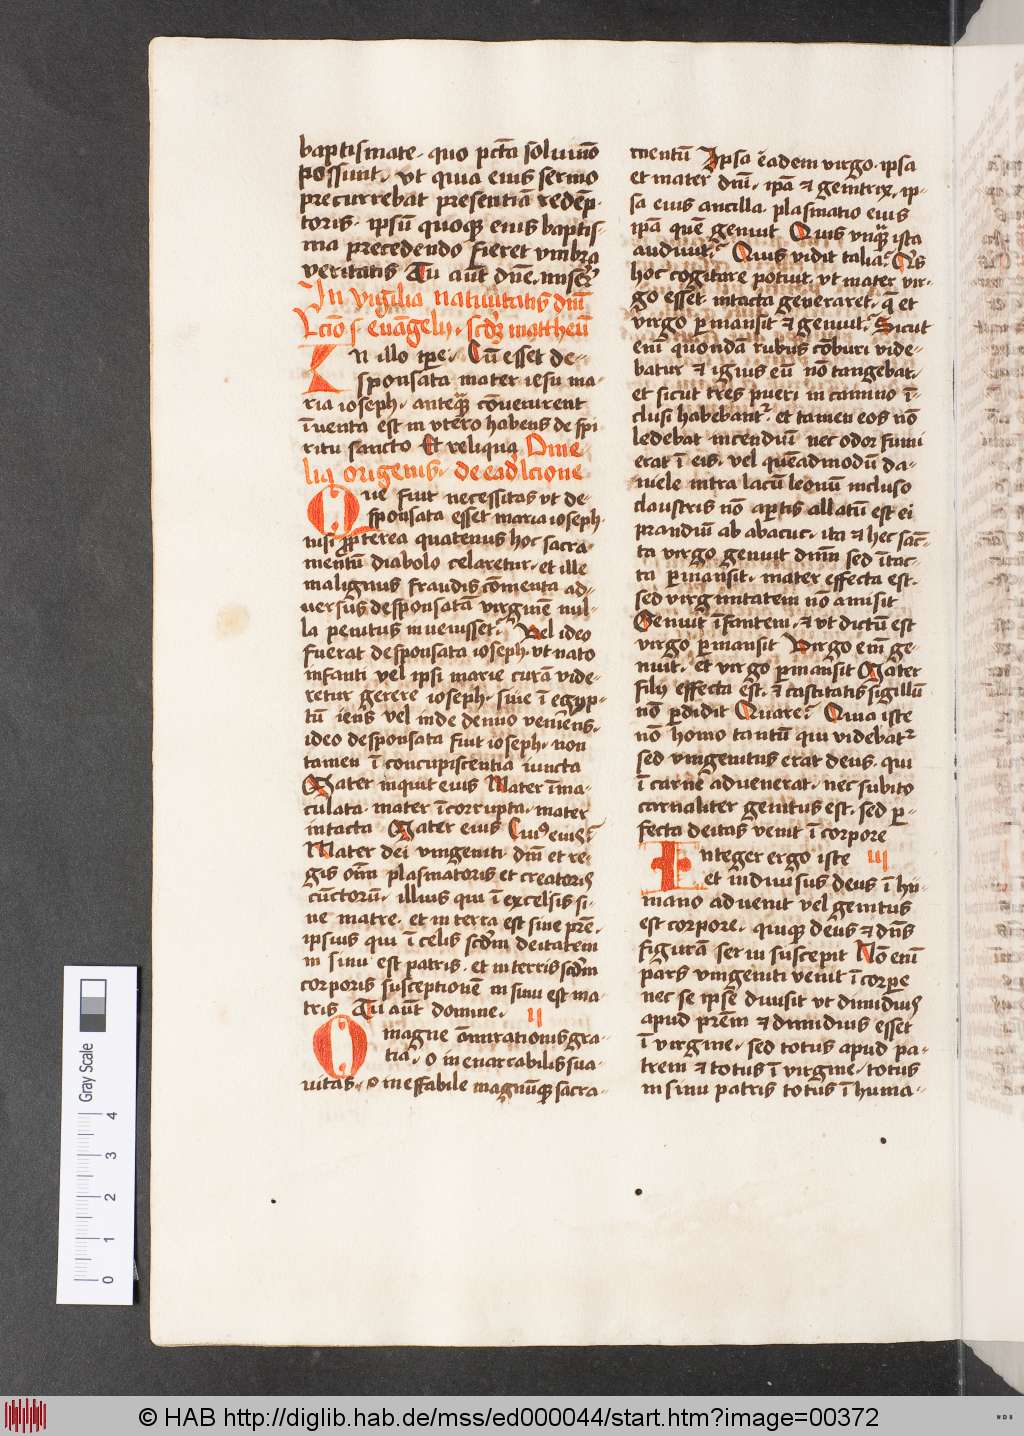 baptismate. quo pctā solui nō
possunt. vt quia eius sermo
precurrebat presentiā redēp-
toris. ipsū quoqꝫ eius baptis-
ma precedendo fieret vmbra
veritatis Tu aūt dn̄e. miser̄
In vigilia natiuitatis dn̄i
Lc̄io j euāgelij. scd̄ꝫ mattheū
In illo tp̄e. Cū esset de-
sponsata mater iesu ma-
ria ioseph. anteqꝫ cōuenirent
īuenta est in vtero habens de spi
ritu sancto Et reliqua Ome-
lia origenis. de eadē lc̄ione
Que fuit necessitas vt de-
sponsata esset maria ioseph.
nisi ꝓpterea quatenus hoc sacra
mentū diabolo celaretur. et ille
malignus fraudis cōmenta ad-
uersus desponsatā virginē nul-
la penitus inuenisset. Vel ideo
fuerat desponsata ioseph. vt nato
infanti vel ipsi marie curā vide-
retur gerere ioseph. siue ī egyp-
tū iens vel inde denuo veniens.
ideo desponsata fuit ioseph. non
tamen ī concupiscentia iuncta
Mater inquit eius Mater īma-
culata. mater īcorrupta. mater
intacta Mater eius Cuiꝰ eius
Mater dei vnigeniti dn̄i et re-
gis om̄i plasmatoris et creatoris
cūctorū. illius qui ī excelsis si-
ne matre. et in terra est sine pr̄e.
ipsius qui ī celis scd̄m deitatem
in sinu est patris. et in terris scd̄m
corporis susceptionē in sinu est ma-
tris Tu aūt domine. II
O magne ām̄irationis gra-
tia. o inenarrabilis sua-
uitas. o ineffabile magnūqꝫ sacra-
mentū Ipsa eadem virgo. ipsa
et mater dn̄i. ip̄a ⁊ genitrix. ip-
sa eius ancilla. plasmatio eius
ip̄a quē genuit Quis vnqꝫ ista
audiuit. Quis vidit talia. Qͥs
hoc cogitare potuit. vt mater vir-
go esset. intacta generaret. q̄ et
virgo ꝑmansit ⁊ genuit. Sicut
em̄ quondā rubus cōburi vide-
batur ⁊ ignis eū nō tangebat.
et sicut tres pueri in camino ī-
clusi habebant. et tamen eos nō
ledebat incendiū nec odor fumi
erat ī eis. vel quēadmodū da-
niele intra lacū leonū incluso
claustris nō aꝑtis allatū est ei
prandiū ab abacuc. ita ⁊ hec sāc-
ta virgo genuit dn̄m sed ītac-
ta ꝑmansit. mater effecta est.
sed virginitatem nō amisit
Genuit īfantem. ⁊ vt dictū est
virgo ꝑmansit Virgo em̄ ge-
nuit. et virgo ꝑmansit Mater
filij effecta est. ⁊ castitatis sigillū
nō ꝑdidit Quare. Quia iste
nō homo tantū qui videbatᷣ
sed vnigenitus erat deus. qui
ī carne aduenerat. nec subito
carnaliter genitus est. sed ꝑ-
fecta deitas venit ī corpore
Integer ergo iste III
et indiuisus deus ī hu-
mano aduenit vel genitus
est corpore. quiqꝫ deus ⁊ dn̄s
figurā serui suscepit Nō enī
pars vnigeniti venit ī corꝑe
nec se ipsē diuisit vt dimidiuꝫ
apud pr̄em ⁊ dimidius esset
ī virgine. sed totus apud pa-
trem ⁊ totus ī virgine. totus
in sinu patris totus ī huma-
Gray Scale
0 1 2 3 4
© HAB http://diglib.hab.de/mss/ed000044/start.htm?image=00372